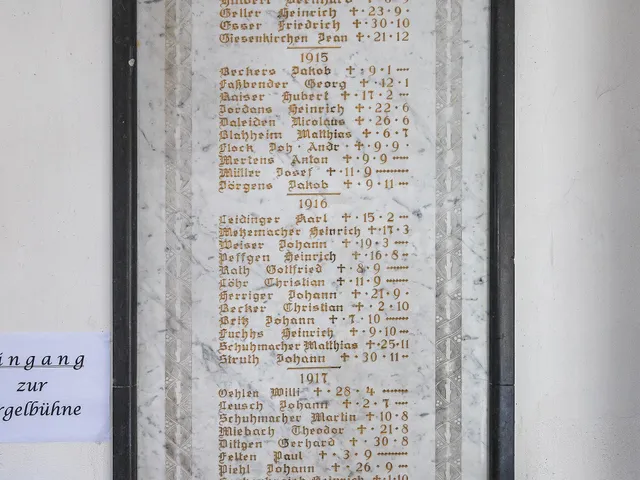 Geller Heinrich ✝ 23 · 9 ·
Esser Friedrich ✝ 30 · 10
Giesenkirchen Jean ✝ 21 · 12
1915
Beckers Jakob ✝ 9 · 1
Faßbender Georg ✝ 12 · 1
Kaiser Hubert ✝ 17 · 2
Jordans Heinrich ✝ 22 · 6
Daleiden Nicolaus ✝ 26 · 6
Blahheim Matthias ✝ 6 · 7
Flock Joh · Andr ✝ 9 · 9 ·
Mertens Anton ✝ 9 · 9
Müller Josef ✝ 11 · 9
Jörgens Jakob ✝ 9 · 11
1916
Leidinger Karl ✝ 15 · 2
Metzmacher Heinrich ✝ 17 · 3
Weiser Johann ✝ 19 · 3
Peffgen Heinrich ✝ 16 · 8
Rath Gottfried ✝ 8 · 9
Löhr Christian ✝ 11 · 9
Herriger Johann ✝ 21 · 9
Becker Christian ✝ 2 · 10
Beitz Johann ✝ 7 · 10
Fuchhs Heinrich ✝ 9 · 10
Schuhmacher Matthias ✝ 25 · 11
Struth Johann ✝ 30 · 11
1917
Oehlen Willi ✝ 28 · 4
Leusch Johann ✝ 2 · 7
Schuhmacher Martin ✝ 10 · 8
Miebach Theodor ✝ 21 · 8
Dittgen Gerhard ✝ 30 · 8
Felten Paul ✝ 3 · 9
Piehl Johann ✝ 26 · 9
Heinrich ✝ 1 · 10
ingang
zur
rgelbühne